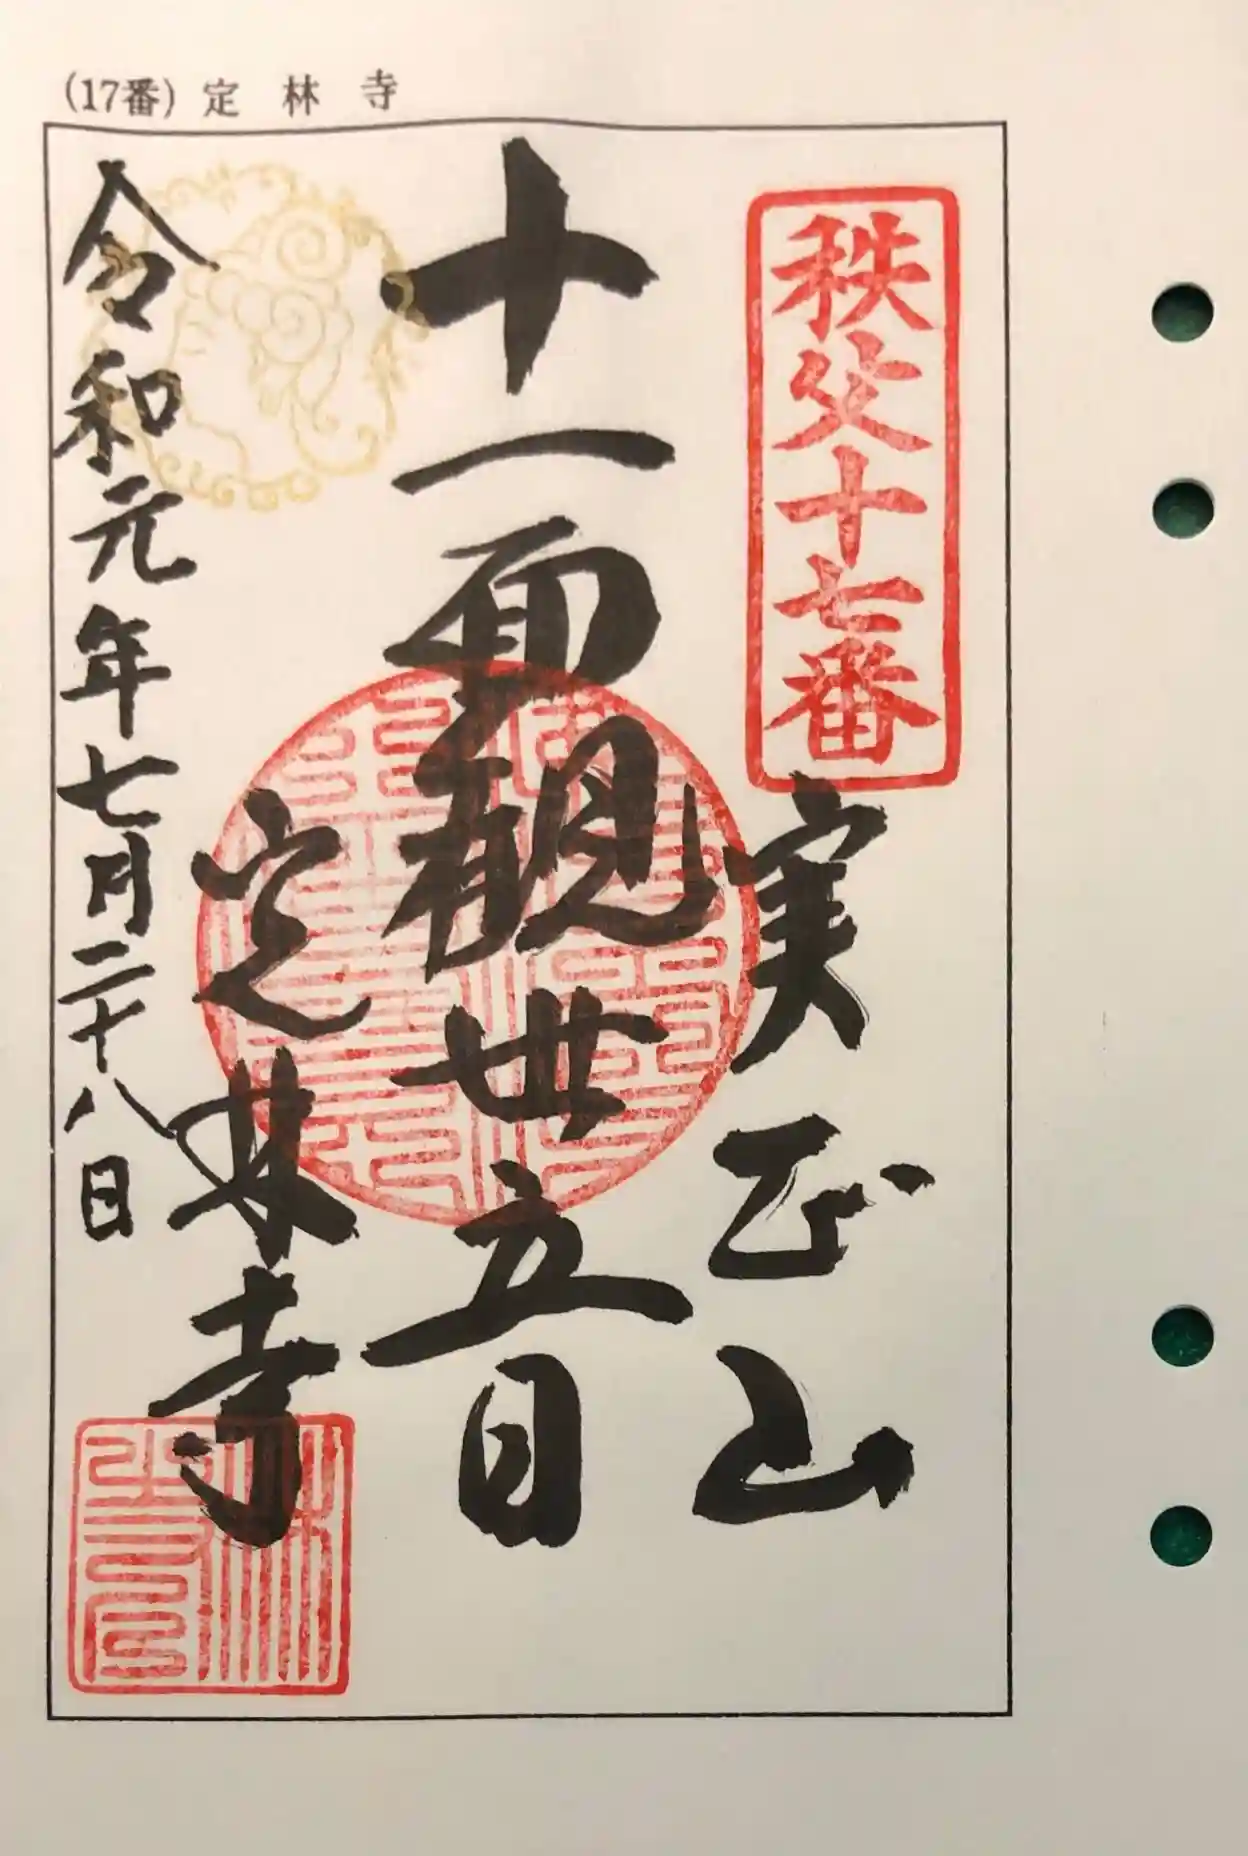 (17番) 定林寺
秩父十七番
実正山
十一面観世音
定林寺
令和元年七月二十八日